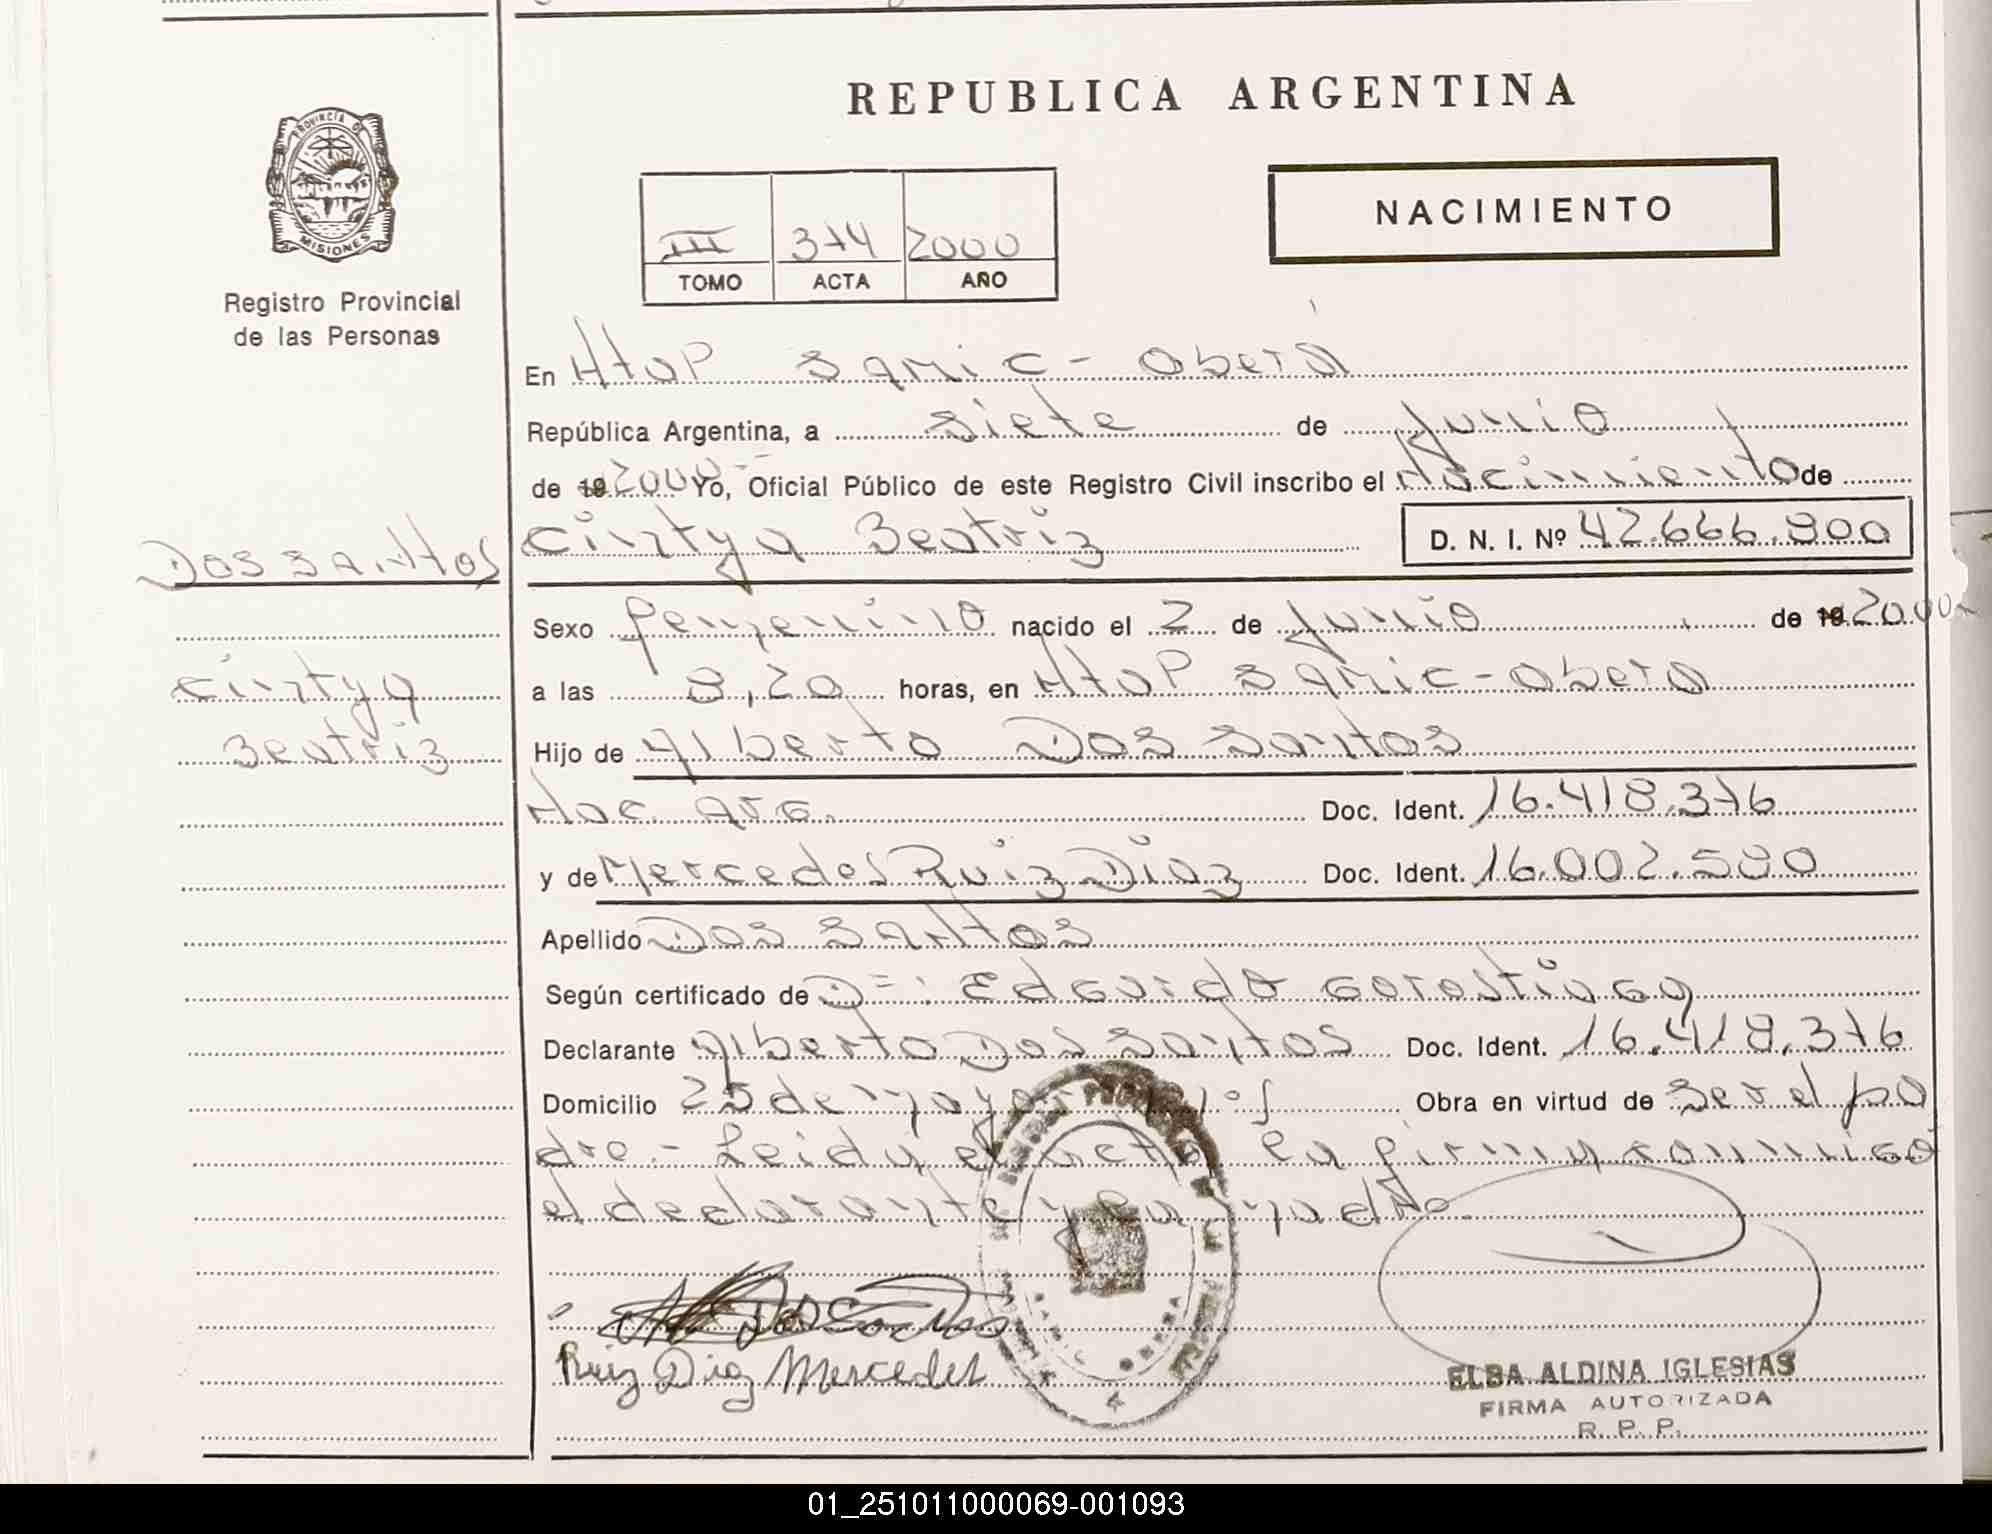 REPUBLICA ARGENTINA
PROVINCIA DE
MISIONES
Registro Provincial
de las Personas
III 374 2000
TOMO ACTA AÑO
NACIMIENTO
En Htop Samic - Oberá
República Argentina, a siete de Junio
de 19 2000 Yo, Oficial Público de este Registro Civil inscribo el Nacimiento de
Cintya Beatriz D. N. I. Nº 42.666.900
Dos Santos
Cintya
Beatriz
Sexo femenino nacido el 2 de Junio de 19 2000
a las 8,20 horas, en Htop Samic - Obera
Hijo de Alberto Dos Santos
Nac. arg. Doc. Ident. 16.418.376
y de Mercedes Ruiz Diaz Doc. Ident. 16.002.580
Apellido Dos Santos
Según certificado de Eduardo Gorostiaga
Declarante Alberto Dos Santos Doc. Ident. 16.418.376
Domicilio 25 de Mayo Obra en virtud de ser el pa
dre.- Leida el acta la firma conmigo
el declarante y la madre
Dos Santos
Ruiz Diaz Mercedes
ELBA ALDINA IGLESIAS
FIRMA AUTORIZADA
R. P. P.
01_251011000069-001093